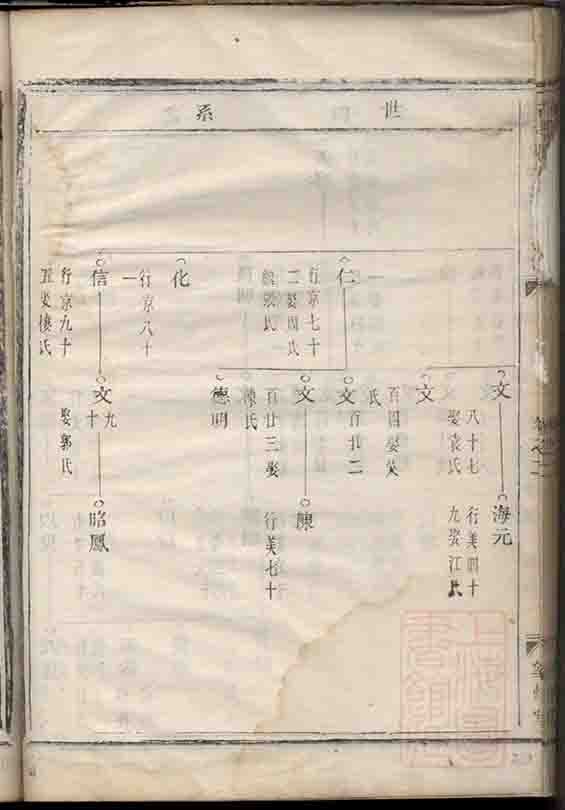 世系
仁
行京七十
二娶周氏
化
行京八十
一
信
行京九十
文
八十七
娶袁氏
文
百四娶吳
氏
文
百廿二
文
百廿三娶
陳氏
德明
文
九
十
娶郭氏
海元
行美四十
九娶江氏
陳
行美七十
昭鳳
卷之二
上海圖書館藏